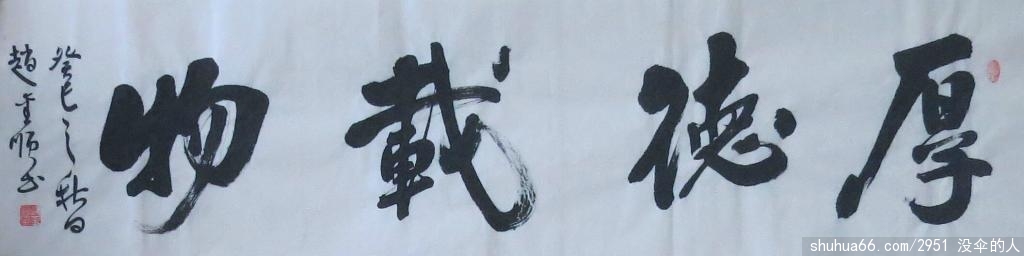 厚德載物
癸巳之秋日
趙金順书
shuhua66.com/2951 没伞的人